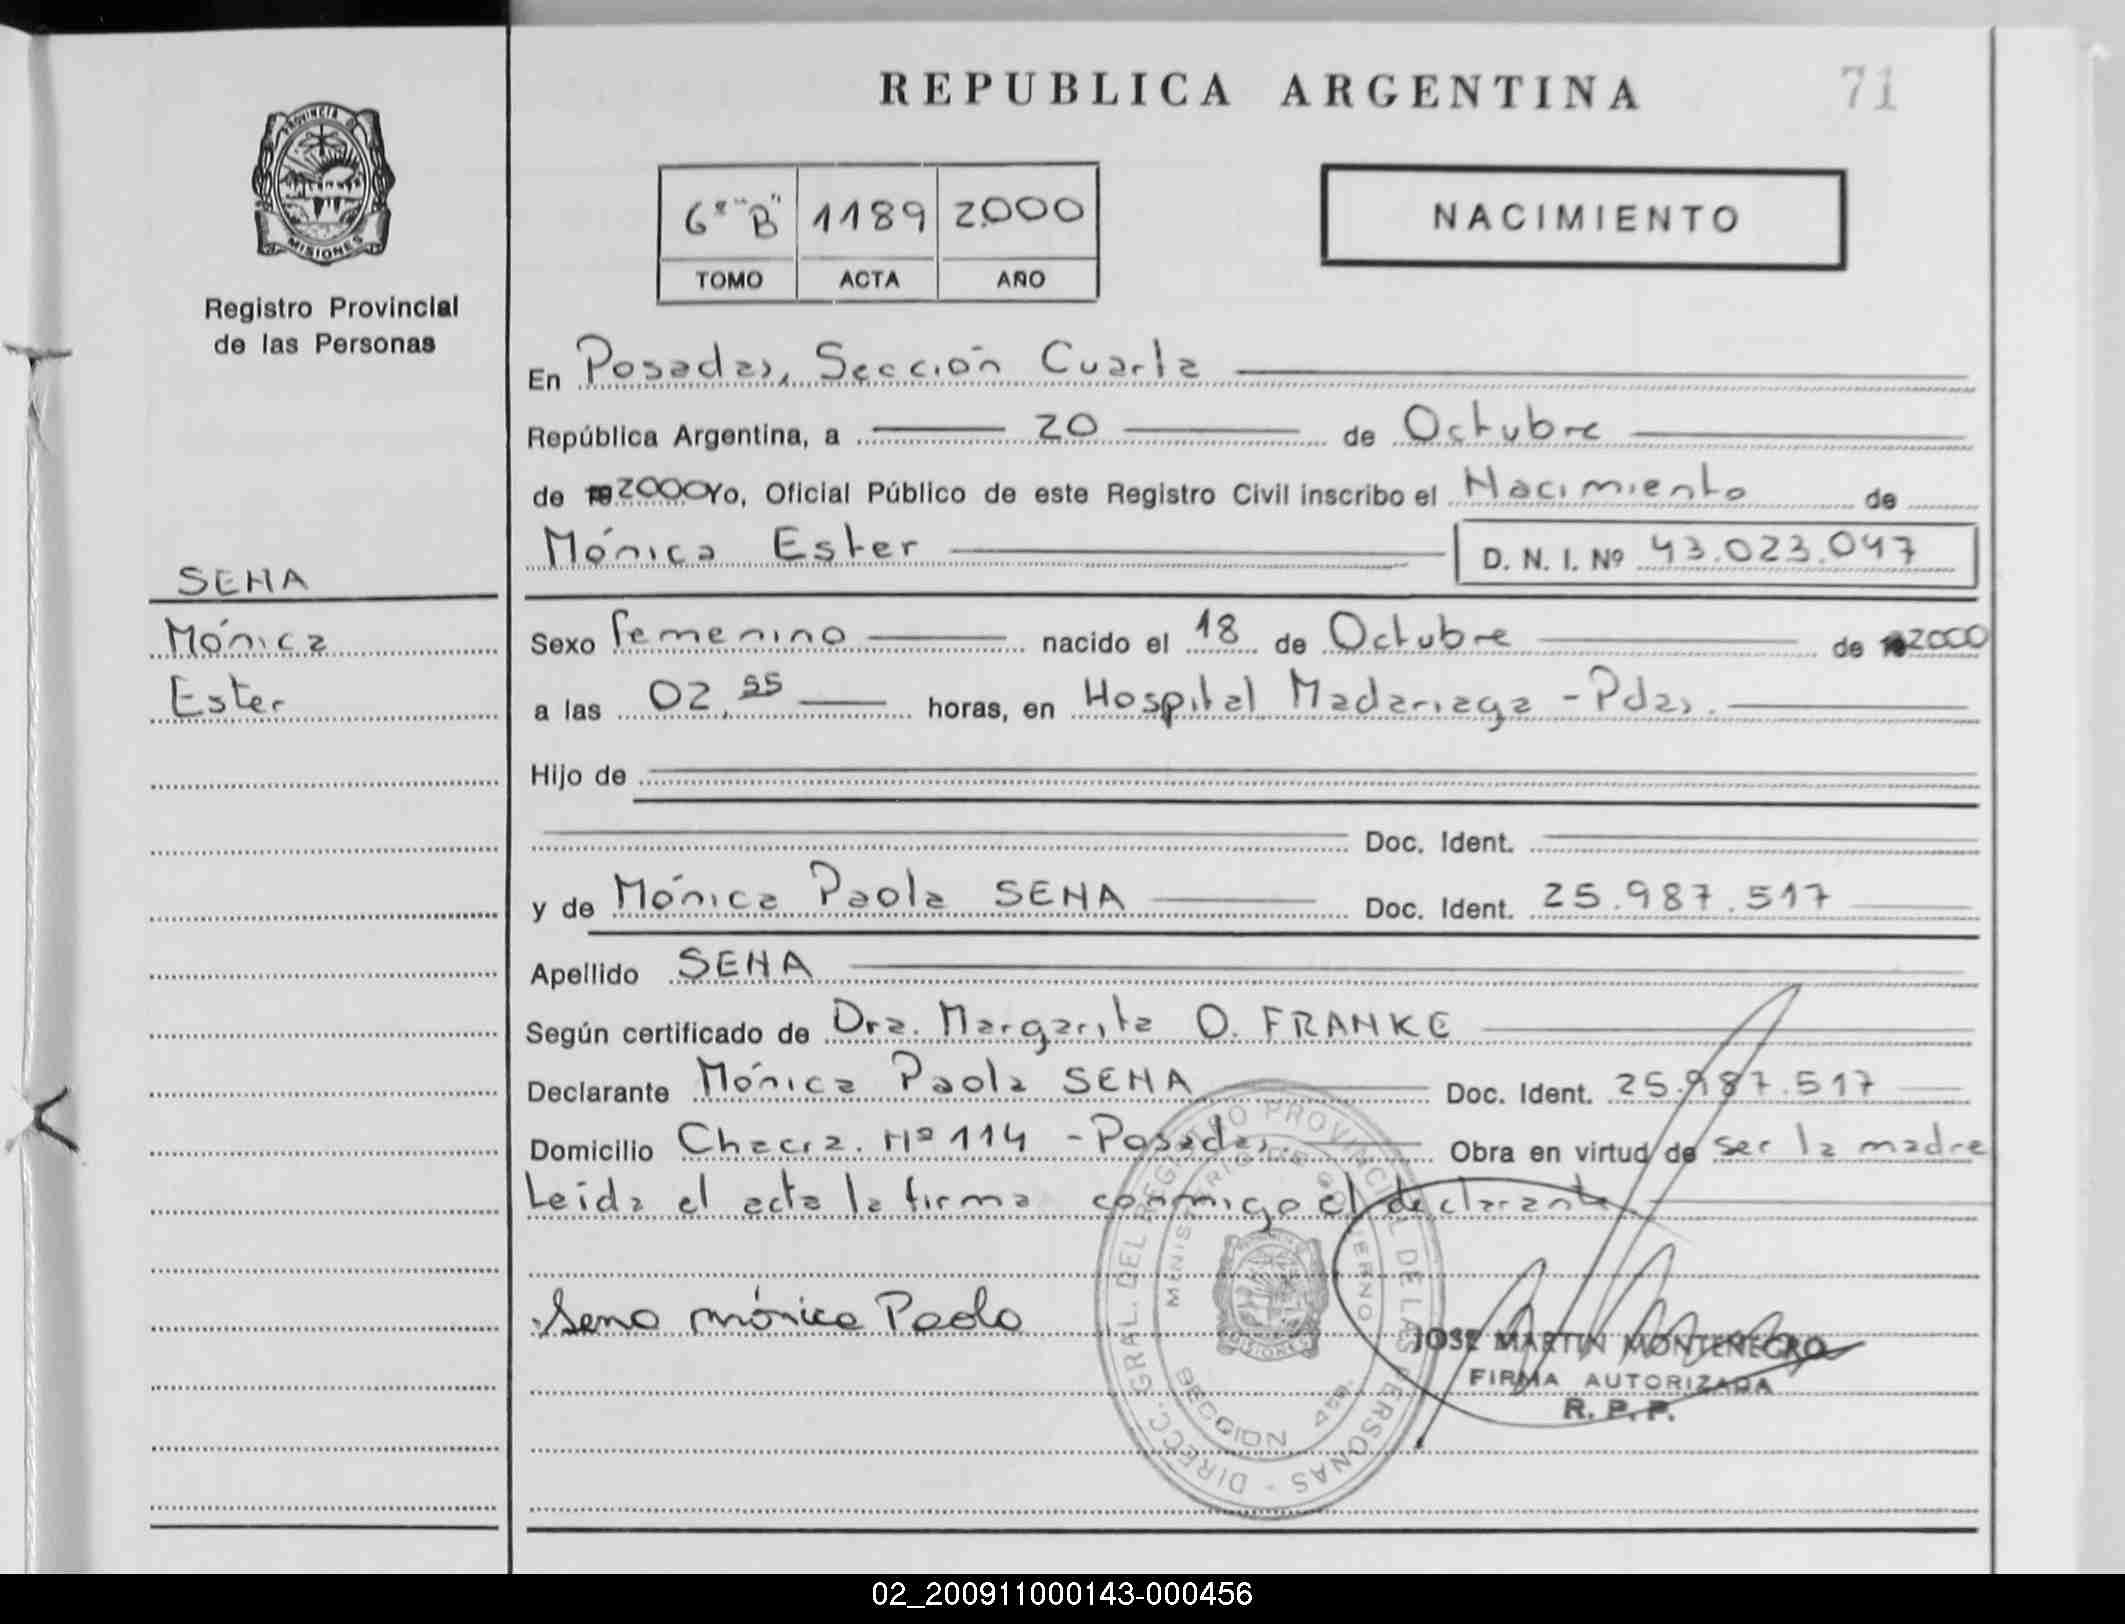 REPUBLICA ARGENTINA
71
PROVINCIA DE
MISIONES
Registro Provincial
de las Personas
6º "B" 1189 2000
TOMO ACTA AÑO
NACIMIENTO
En Posadas, Sección Cuarta
República Argentina, a 20 de Octubre
de 2000 Yo, Oficial Público de este Registro Civil inscribo el Nacimiento de
Mónica Ester D. N. I. Nº 43.023.047
SENA
Mónica
Ester
Sexo femenino nacido el 18 de Octubre de 2000
a las 02,55 horas, en Hospital Madariaga - Pdas.
Hijo de
Doc. Ident.
y de Mónica Paola SENA Doc. Ident. 25.987.517
Apellido SENA
Según certificado de Dra. Margarita O. FRANKE
Declarante Mónica Paola SENA Doc. Ident. 25.987.517
Domicilio Chacra. Nº 114 - Posadas. Obra en virtud de ser la madre
Leida el acta la firma conmigo el declarante.
Sena mónica Paola
DIRECC. GRAL. DEL REGISTRO PROVINCIAL DE LAS PERSONAS
MINISTERIO DE GOBIERNO
MISIONES
SECCION 4ta.
JOSE MARTIN MONTENEGRO
FIRMA AUTORIZADA
R. P. P.
02_200911000143-000456